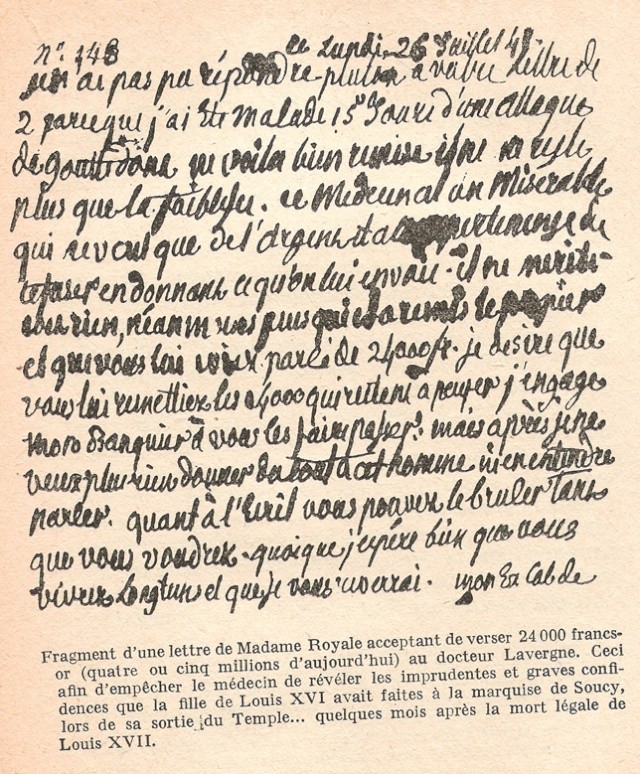 nº 148 ce Lundi 26 Juillet 48
n'ai pas pu répondre plutot à votre Lettre de
2 parceque j'ai été malade 15 Jours d'une attaque
de goutte donc me voila bien remise il ne me reste
plus que la faiblesse. ce Medecin est un Misérable
qui ne veut que de l'argent il a l'impertinence de
refuser en donnant ce qu'on lui envoie. il ne merite
rien, néanmoins puisqu'il a remis le papier
et que vous lui avez parlé de 24000 fr. je desire que
vous lui remettiez les 14000 qui restent à payer j'engage
mon Banquier à vous les faire passer. mais après je ne
veux plus rien donner du tout à cet homme ni en entendre
parler. quant à l'Ecrit vous pouvez le bruler tans
que vous voudrez. quoique j'espère bien que vous
vivrez Longtems et que je vous reverrai. mon Ex
Fragment d'une lettre de Madame Royale acceptant de verser 24 000 francs-
or (quatre ou cinq millions d'aujourd'hui) au docteur Lavergne. Ceci
afin d'empêcher le médecin de révéler les imprudentes et graves confi-
dences que la fille de Louis XVI avait faites à la marquise de Soucy,
lors de sa sortie du Temple... quelques mois après la mort légale de
Louis XVII.